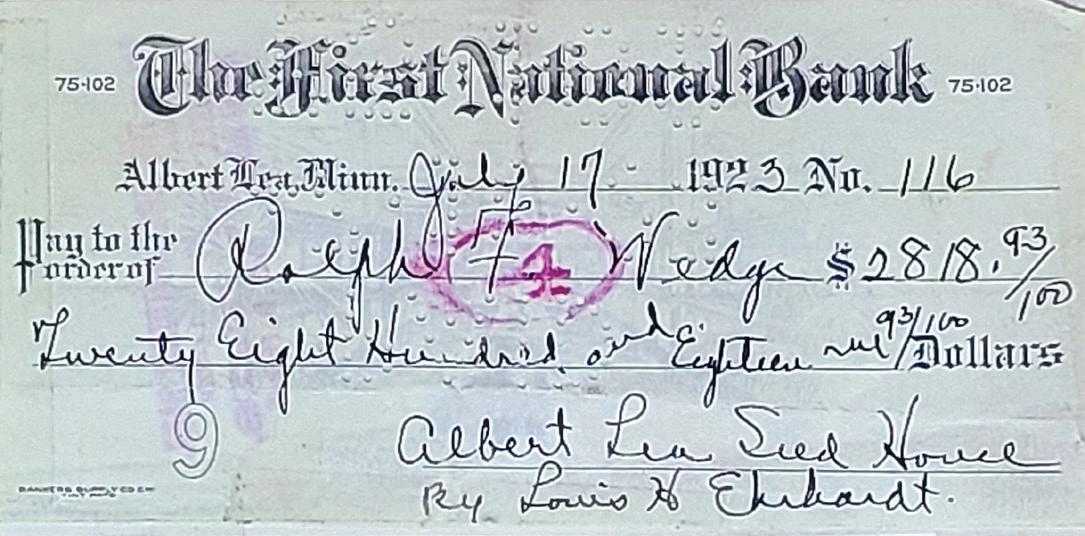 75-102 The First National Bank 75-102
Albert Lea, Minn. July 17 1923 No. 116
Pay to the order of Ralph F. Wedge $2818.93/100
4
Twenty Eight Hundred and Eighteen and 93/100 Dollars
9
Albert Lea Seed House
By Louis H Ehrhardt.
BANKERS SUPPLY CO